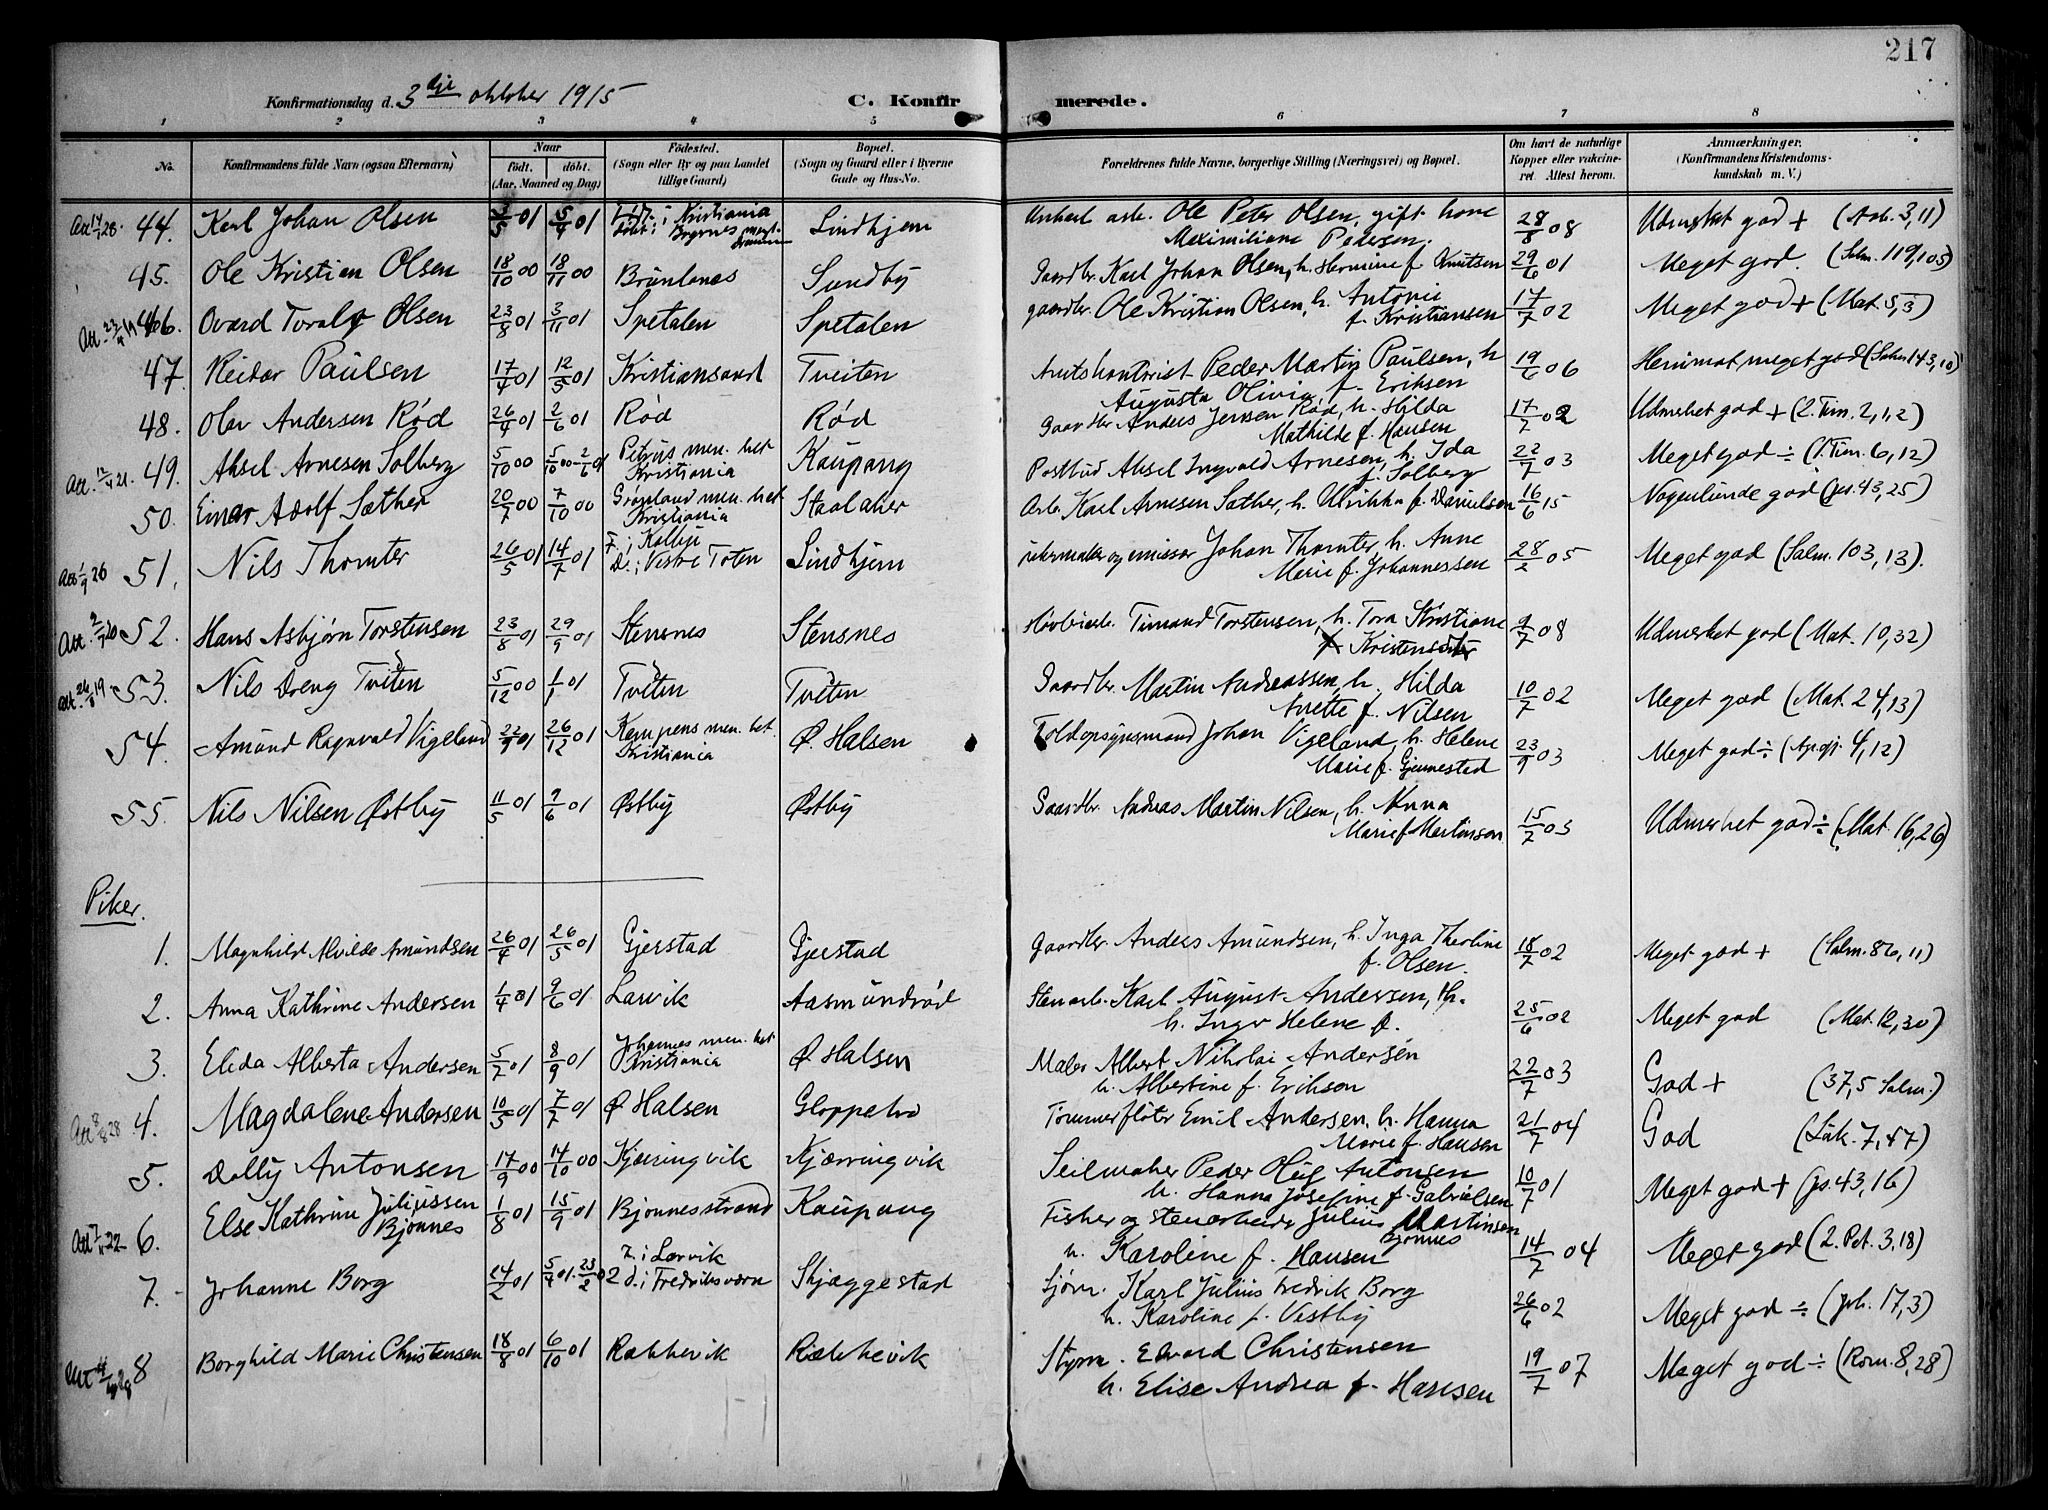 217
Konfirmationsdag d. 3dje oktober 1915 C. Konfirmerede.
1 2 3 4 5 6 7 8
No. Konfirmandens fulde Navn (ogsaa Efternavn) Naar født. døbt. (Aar, Maaned og Dag) Fødested. (Sogn eller By og paa Landet tillige Gaard) Bopæl. (Sogn og Gaard eller i Byerne Gade og Hus-No. Forældrenes fulde Navne, borgerlige Stilling (Næringsvei) og Bopæl. Om havt de naturlige Kopper eller vakcineret. Attest herom. Anmærkninger. (Konfirmandens Kristendomskundskab m. V.)
Att 17/1 28. 44. Karl Johan Olsen 5 01 5/4 01 Født i Kristiania døbt i Lindhjem Ole Peter Olsen, gift Maximiliane Pedersen. 28/8 08 Udmerket god + (Aab. 3,11)
45. Ole Kristian Olsen 18/10 00 18/11 00 Brunlanes Sundby Gaardbr. Karl Johan Olsen, h. Hermine f. Knutsen 29/6 01 Meget god. (Salm. 119,105)
46. Overd Toralf Olsen 23/8 01 3/11 01 Spetalen Spetalen gaardbr. Ole Kristian Olsen, h. Antonie f. Kristiansen 17/7 02 Meget god + (Mat. 5,3)
47. Reidar Paulsen 17/4 01 12/5 01 Kristianssand Tveiten Amtskontorist Peder Martin Paulsen, h Augusta Olivia f. Eriksen 19/6 06 meget god (Salm 143,10)
48. Olav Andersen Rød 26/4 01 2/6 01 Rød Rød Gaardbr Anders Jensen Rød, h. Hilda Mathilde f. Hansen 17/7 02 Udmerket god + (2. Tim. 2,1,2)
Att. 12/4 21. 49. Aksel Arnesen Solberg 5/10 00 5/10 00 - 2/6 01 Petrus men.het Kristiania Kaupang Postbud Aksel Ingvald Arnesen, h. Ida f. Solberg 22/7 03 Meget god ÷ (1. Tim. 6,12)
50. Einar Adolf Sæther 20/7 00 7/10 00 Grønland men.het Kristiania Staalaker Arb. Karl Arnesen Sæther, h. Ulrikka f. Danielsen 16/6 15 Nogenlunde god (Jes. 43,25)
Att 1/9 26 51. Nils Thomter 26/5 01 14/7 01 F. i Kolbu D. i Vestre Toten Lindhjem urmaker og emissær Johan Thomter, h. Anne Marie f. Johannessen 28/2 05 Meget god (Salm. 103,13).
Att. 2/7 20 52. Hans Asbjørn Torstensen 23/8 01 29/9 01 Stensnes Stensnes Høvleriarb. Timand Torstensen, h. Tora Kristiane f. Kristensdtr 9/7 08 Udmerket god (Mat. 10,32)
Att. 26/8 19 53. Nils Dreng Tveten 5/12 00 1/1 01 Tveten Tveten Gaardbr. Martin Andreassen, h. Hilda Anette f. Nilsen 10/7 02 Meget god (Mat. 24,13)
54. Amund Ragnvald Vigeland 22/9 01 26/12 01 Kampens men.het. Kristiania Ø. Halsen Toldopsynsmand Johan Vigeland, h. Helene Marie f. Gjennestad 23/9 03 Meget god ÷ (Ap.gj. 4,12)
55. Nils Nilsen Østby 11/5 01 9/6 01 Østby Østby Gaardbr. Andreas Martin Nilsen, h. Anna Marie f Martinsen 15/7 03 Udmerket god ÷ (Mat. 16,26)
Piker.
1. Magnhild Alvilde Amundsen 26/4 01 26/5 01 Gjerstad Gjerstad Gaardbr. Anders Amundsen, h. Inga Theoline f. Olsen. 18/7 02 Meget god + (Salm. 86,11)
2. Anna Kathrine Andersen 1/4 01 9/6 01 Larvik Aasmundrød Stenarb. Karl August Andersen, h. Inger Helene f. 25/6 02 Meget god (Mat. 12,30)
3. Elida Alberta Andersen 5/7 01 8/9 01 Johannes men.het Kristiania Ø Halsen Maler Albert Nikolai Andersen h. Albertine f. Erikson 22/7 03 God + (37,5 Salm.)
Att 8/8 28 4. Magdalene Andersen 10/5 01 7/7 01 Ø Halsen Gloppebro Tømmerfløter Emil Andersen, h. Hanna Marie f. Hansen 21/7 04 God (Luk. 7,47)
5. Dolly Antonsen 17/9 00 14/10 00 Kjærringvik Kjærringvik Seilmaker Peder Oluf Antonsen h. Hanna Josefine f. Gabrielsen 10/7 01 Meget god + (Js. 43,16)
6. Else Kathrine Juliussen Bjønnes 1/8 01 15/9 01 Bjønnesstrand Kaupang Fisker og stenarbeider Julius Martinsen Bjønnes h. Karoline f. Hansen 14/7 04 Meget god (2. Pet. 3,18)
7. Johanne Borg 14/2 01 5/4 01 - 23/2 02 F. i Larvik d. i Fredriksværn Skjæggestad Sjøm. Karl Julius Fredrik Borg h. Karoline f. Vestby 26/6 02 Meget god ÷ (Joh. 17,3)
8 Borghild Marie Christensen 18/8 01 6/10 01 Rækkevik Rækkevik Styrm. Edvard Christensen h. Elise Andrea f. Hansen 19/7 07 Meget god ÷ (Rom. 8,28)